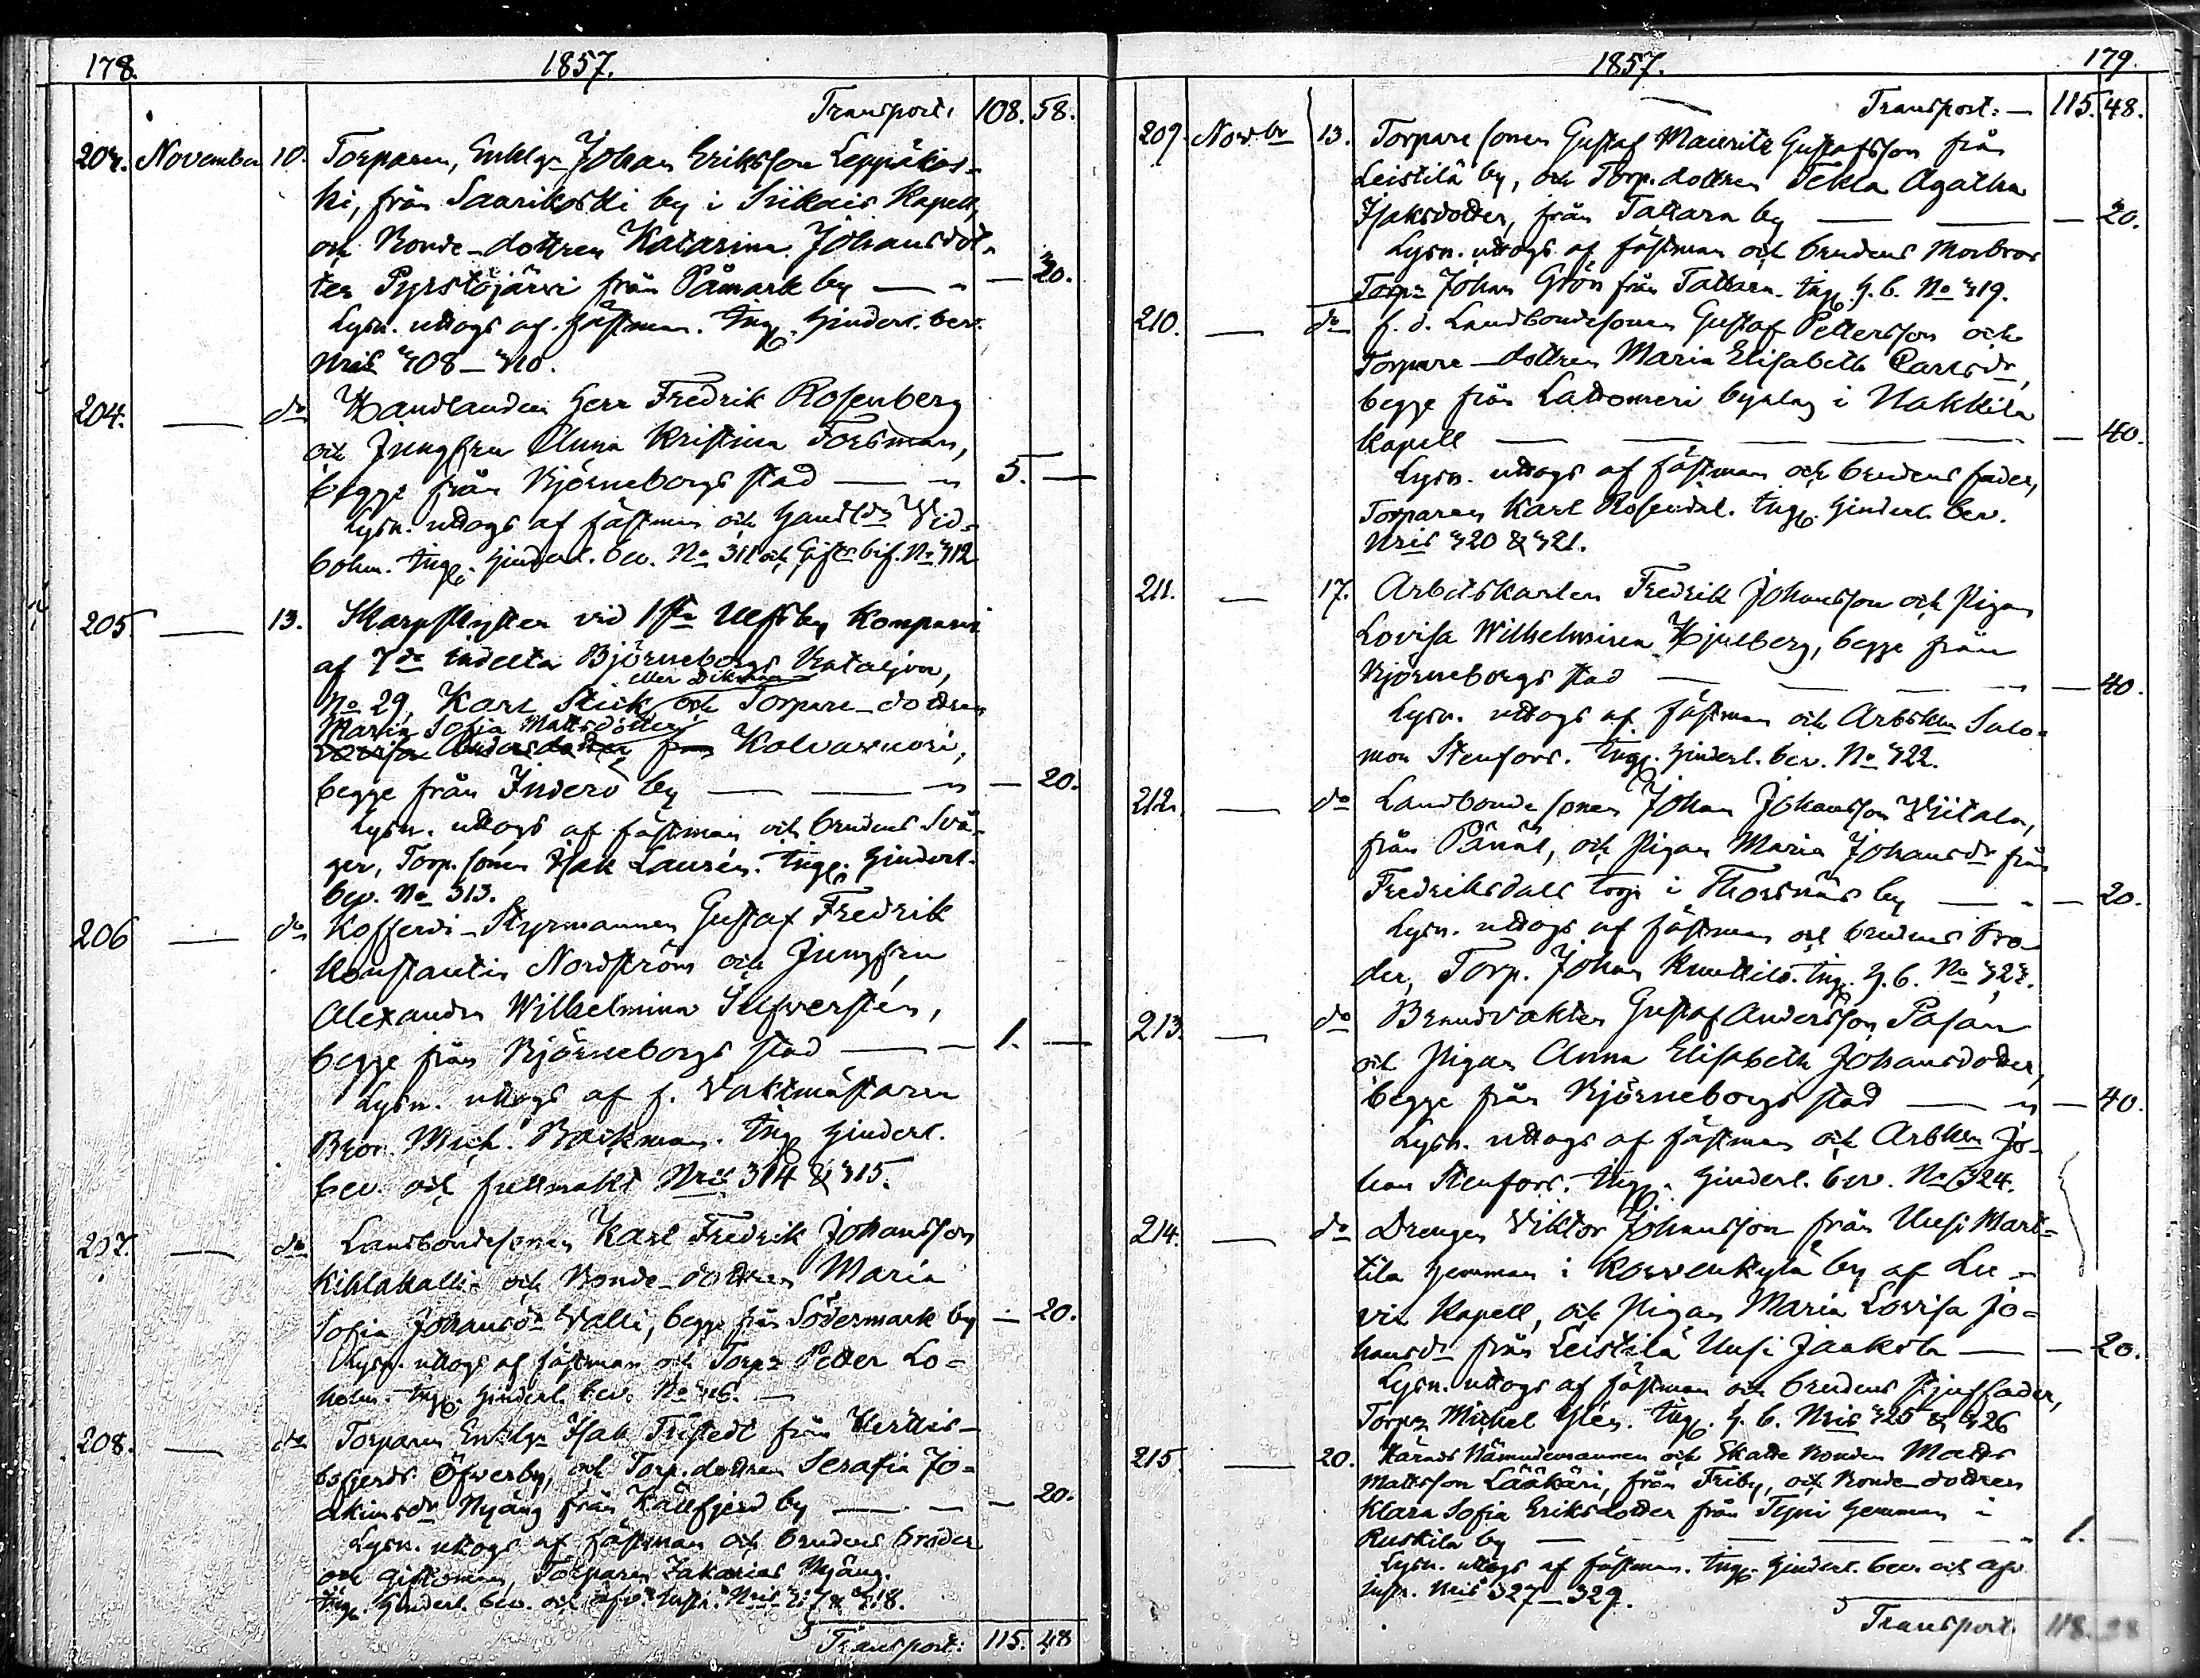 178. 1857.
Transport: 108. 58.
203. November 10. Torparen, Enklgn Johan Eriksson Leppäkos-
ki, från Saarikoski by i Siikais Kapell,
och Bonde-dottren Katarina Johansdot-
ter Pyrstöjärvi från Påmark by — " — 20.
Lysn. uttogs af fästman. Ingg. Hinderl. bev.
Nris 308-310.
204. — do Handlanden Herr Fredrik Rosenberg
och Jungfru Anna Kristina Forsman,
begge från Björneborgs stad — " 5. —
Lysn. uttogs af fästman och Handldn Wid-
bohm. Ingg. Hinderl. bev. No 311 och Giftom bif. No 312
205. — 13. Skarpskytten vid 1sta Ulfsby Kompani
af 7de Indelta Björneborgs Bataljon,
eller Dikman
No 29, Karl Stick och Torpare-dottren
Maria Sofia Mattsdotter
Lovisa Andersdotter från Kolvasnori,
begge från Inderö by — — " — 20.
Lysn. uttogs af fästman och brudens Svå-
ger, Torp. sonen Isak Laurén. Ingg. Hinderl.
bev. No 313.
206 — do Kofferdi-Styrmannen Gustaf Fredrik
Konstantin Nordström och Jungfru
Alexandra Wilhelmina Silfverstén,
begge från Björneborgs stad — — 1. —
Lysn. uttogs af f. Vaktmästaren
Bror. Mich. Backman. Ingg. Hinderl.
bev. och fullmakt Nris 314 & 315.
207. — do Landbondesonen Karl Fredrik Johansson
Kihlakalli och Bonde-dottren Maria
Sofia Johansdr Walli, begge från Södermark by — 20.
Lysn. uttogs af fästman och Torpn Petter Lo-
holm. Ingg. Hinderl. bev. No 316. —
208. — do Torparen Enklgn Isak Fristedt från Verttis-
bofjerds Öfverby, och Torp. dottren Serafia Jo-
akimsdr Nyäng från Källfjerd by — — — 20.
Lysn. uttogs af fästman och brudens broder
och giftoman, Torparen Zakarias Nyäng.
Ingg. Hinderl. bev. och afv. instr. Nris 317 & 318.
Transport: 115. 48
1857. 179.
Transport: — 115. 48.
209. Novbr 13. Torpare sonen Gustaf Mauritz Gustafsson från
Leistilä by, och Torp. dottren Tekla Agatha
Isaksdotter, från Tattara by — — — 20.
Lysn. uttogs af fästman och brudens Morbror
Torpn Johan Grön från Tattara. Ingg. H. b. No 319.
210. — do f. d. Landbondesonen Gustaf Pettersson och
Torpare-dottren Maria Elisabeth Carlsdr,
begge från Lattomeri byalag i Nakkila
Kapell — — — — — — 40.
Lysn. uttogs af fästman och brudens fader,
Torparen Karl Rosendal. Ingg. Hinderl. bev.
Nris 320 & 321.
211. — 17. Arbetskarlen Fredrik Johansson och Pigan
Lovisa Wilhelmina Hjulberg, begge från
Björneborgs stad — — — " — 40.
Lysn. uttogs af fästman och Arbskn Salo-
mon Stenfors. Ingg. Hinderl. bev. No 322.
212. — do Landbonde sonen Johan Johansson Viitala,
från Pänäs, och Pigan Maria Johansdr från
Fredriksdals torp i Thorsnäs by — " — 20.
Lysn. uttogs af fästman och brudens bro-
der, Torp. Johan Knuttila. Ingg. H. b. No 323.
213. — do Brandvakten Gustaf Andersson Pasan
och Pigan Anna Elisabeth Johansdotter,
begge från Björneborgs stad — " — 40.
Lysn. uttogs af fästman och Arbkn Jo-
han Stenfors. Ingg. Hinderl. bev. No 324.
214. — do Drengen Viktor Johansson från Uusi Mart-
tila hemman i Korvenkylä by af Lu-
via Kapell, och Pigan Maria Lovisa Jo-
hansdr från Leistilä Uusi Jaakola — — 20.
Lysn. uttogs af fästman och brudens stjuffader,
Torpn Michel Ylén. Ingg. H. b. Nris 325 & 326
215 — 20. Härads Nämndemannen och Skatte Bonden Matts
Mattsson Lääkäri, från Friby, och Bonde-dottren
Klara Sofia Eriksdotter från Typi Hemman i
Ruskila by — — — — " 1. —
Lysn. uttogs af fästman. Ingg. Hinderl. bev. och afv.
instr. Nris 327-329.
Transport: 118.